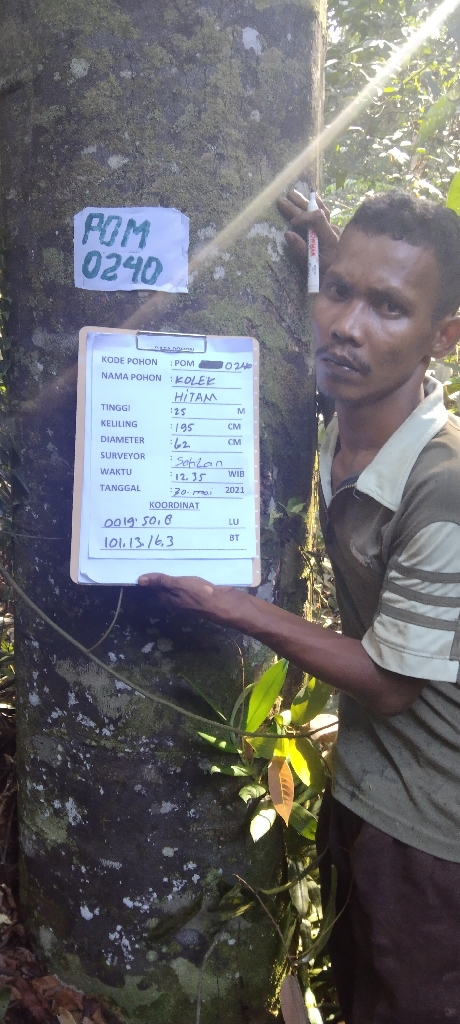 POM
0240
DATA POHON
KODE POHON : POM 0240
NAMA POHON : KOLEK
HITAM
TINGGI : 25 M
KELILING : 195 CM
DIAMETER : 62 CM
SURVEYOR :
WAKTU : 12.35 WIB
TANGGAL : 30. mai 2021
KOORDINAT
0019'.50.8 LU
101.13.16.3 BT